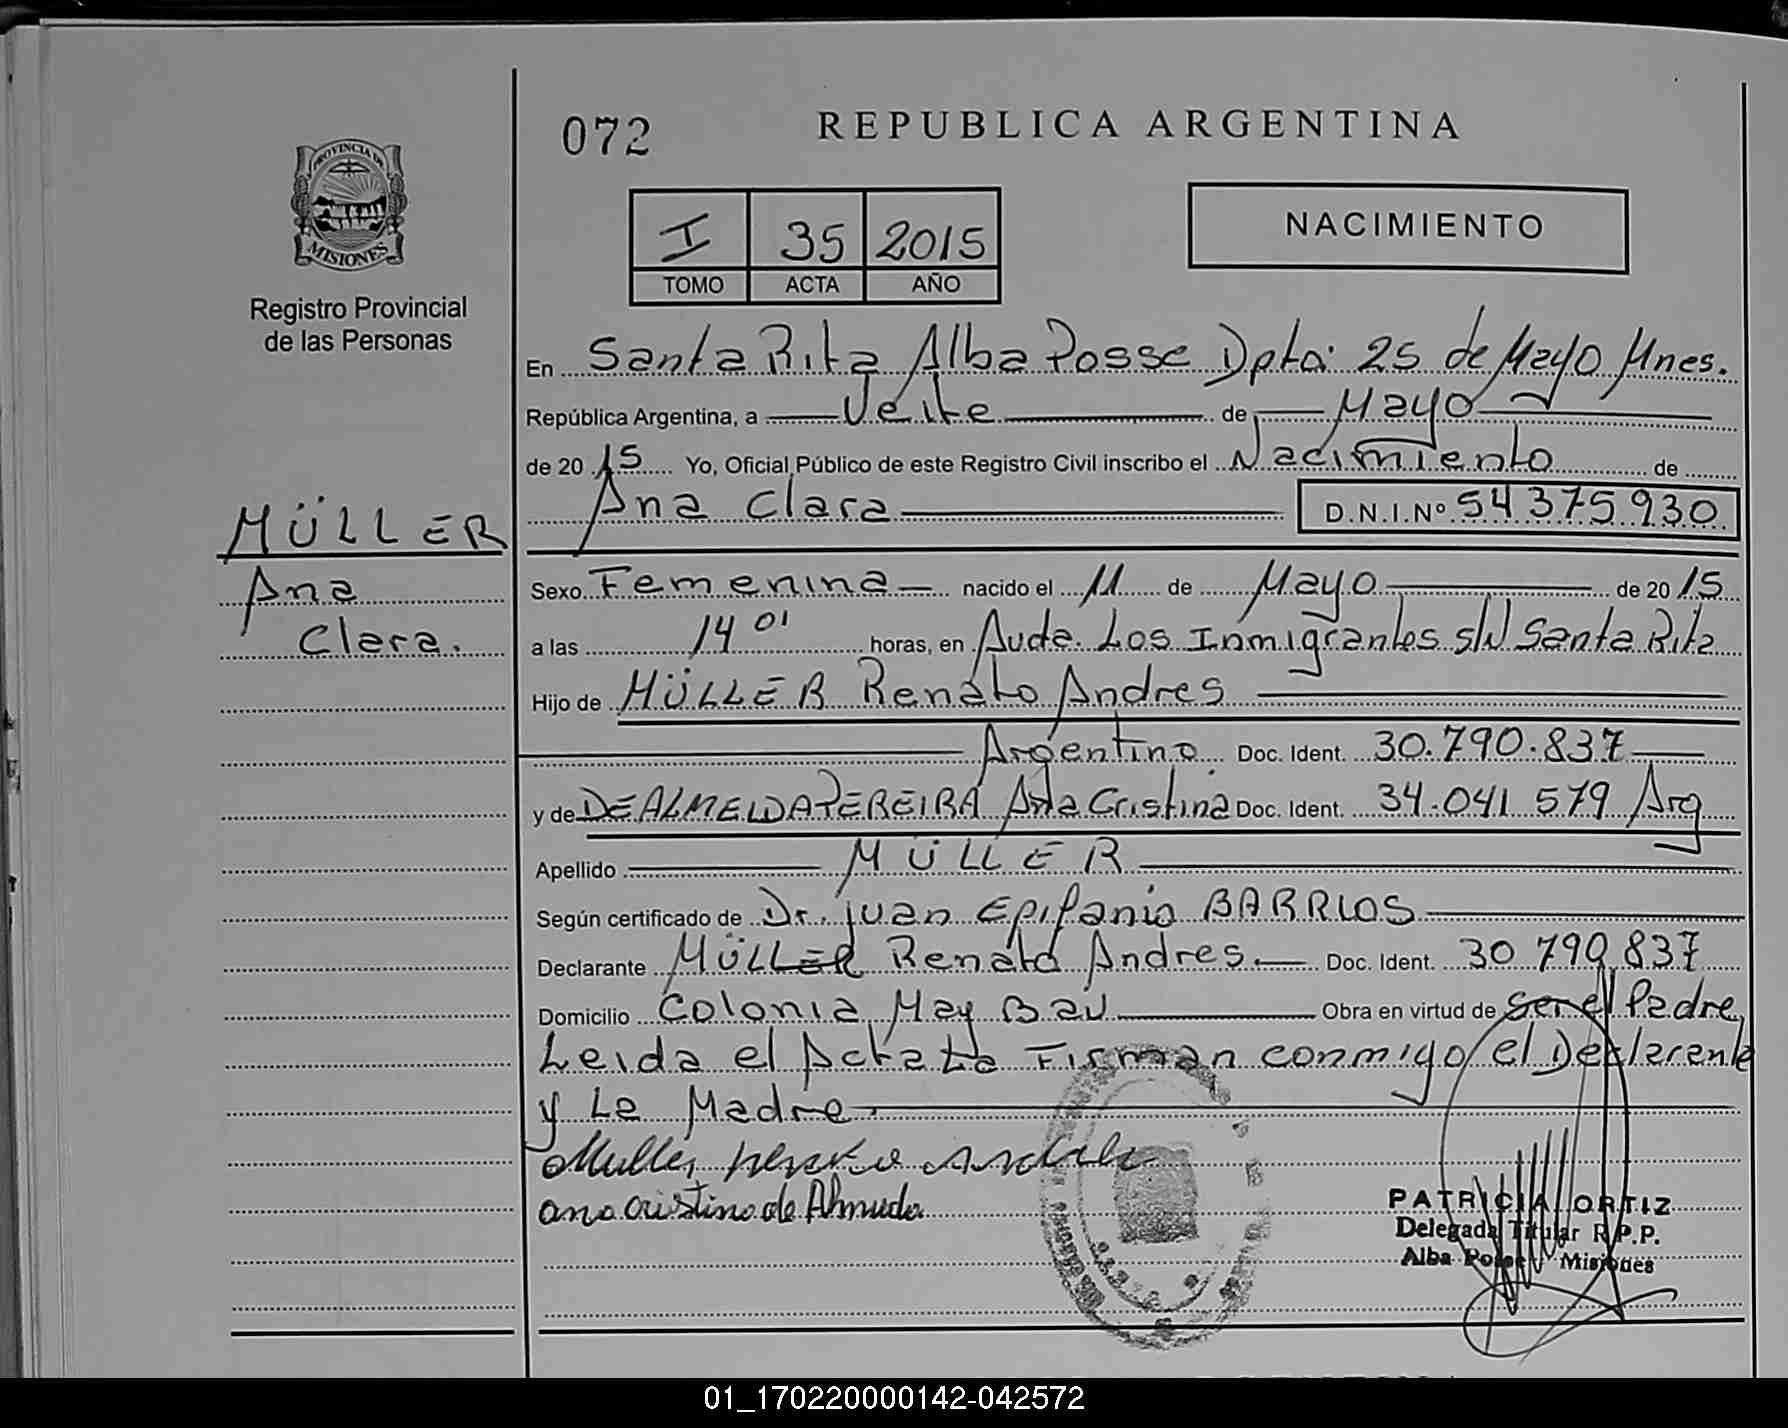 072
REPUBLICA ARGENTINA
PROVINCIA DE
MISIONES
Registro Provincial
de las Personas
I 35 2015
TOMO ACTA AÑO
NACIMIENTO
En Santa Rita Alba Posse Dpto: 25 de Mayo Mnes.
República Argentina, a Veite de Mayo
de 2015 Yo, Oficial Público de este Registro Civil inscribo el Nacimiento de
Ana Clara D.N.I.Nº 54375930
MÜLLER
Ana
Clara.
Sexo Femenina nacido el 11 de Mayo de 2015
a las 14 01 horas, en Avda. Los Inmigrantes s/N Santa Rita
Hijo de MÜLLER Renato Andres
Argentino Doc. Ident. 30.790.837
y de DE ALMEIDA PEREIRA Ana Cristina Doc. Ident. 34.041 579 Arg
Apellido MÜLLER
Según certificado de Dr. Juan Epifanio BARRIOS
Declarante MÜLLER Renato Andres. Doc. Ident. 30 790 837
Domicilio Colonia May Bau Obra en virtud de ser el Padre,
Leida el Acta La Firman conmigo el Declarante
y La Madre.
Muller
ana cristina de
PATRICIA ORTIZ
Delegada Titular R.P.P.
Alba Posse Misiones
01_170220000142-042572